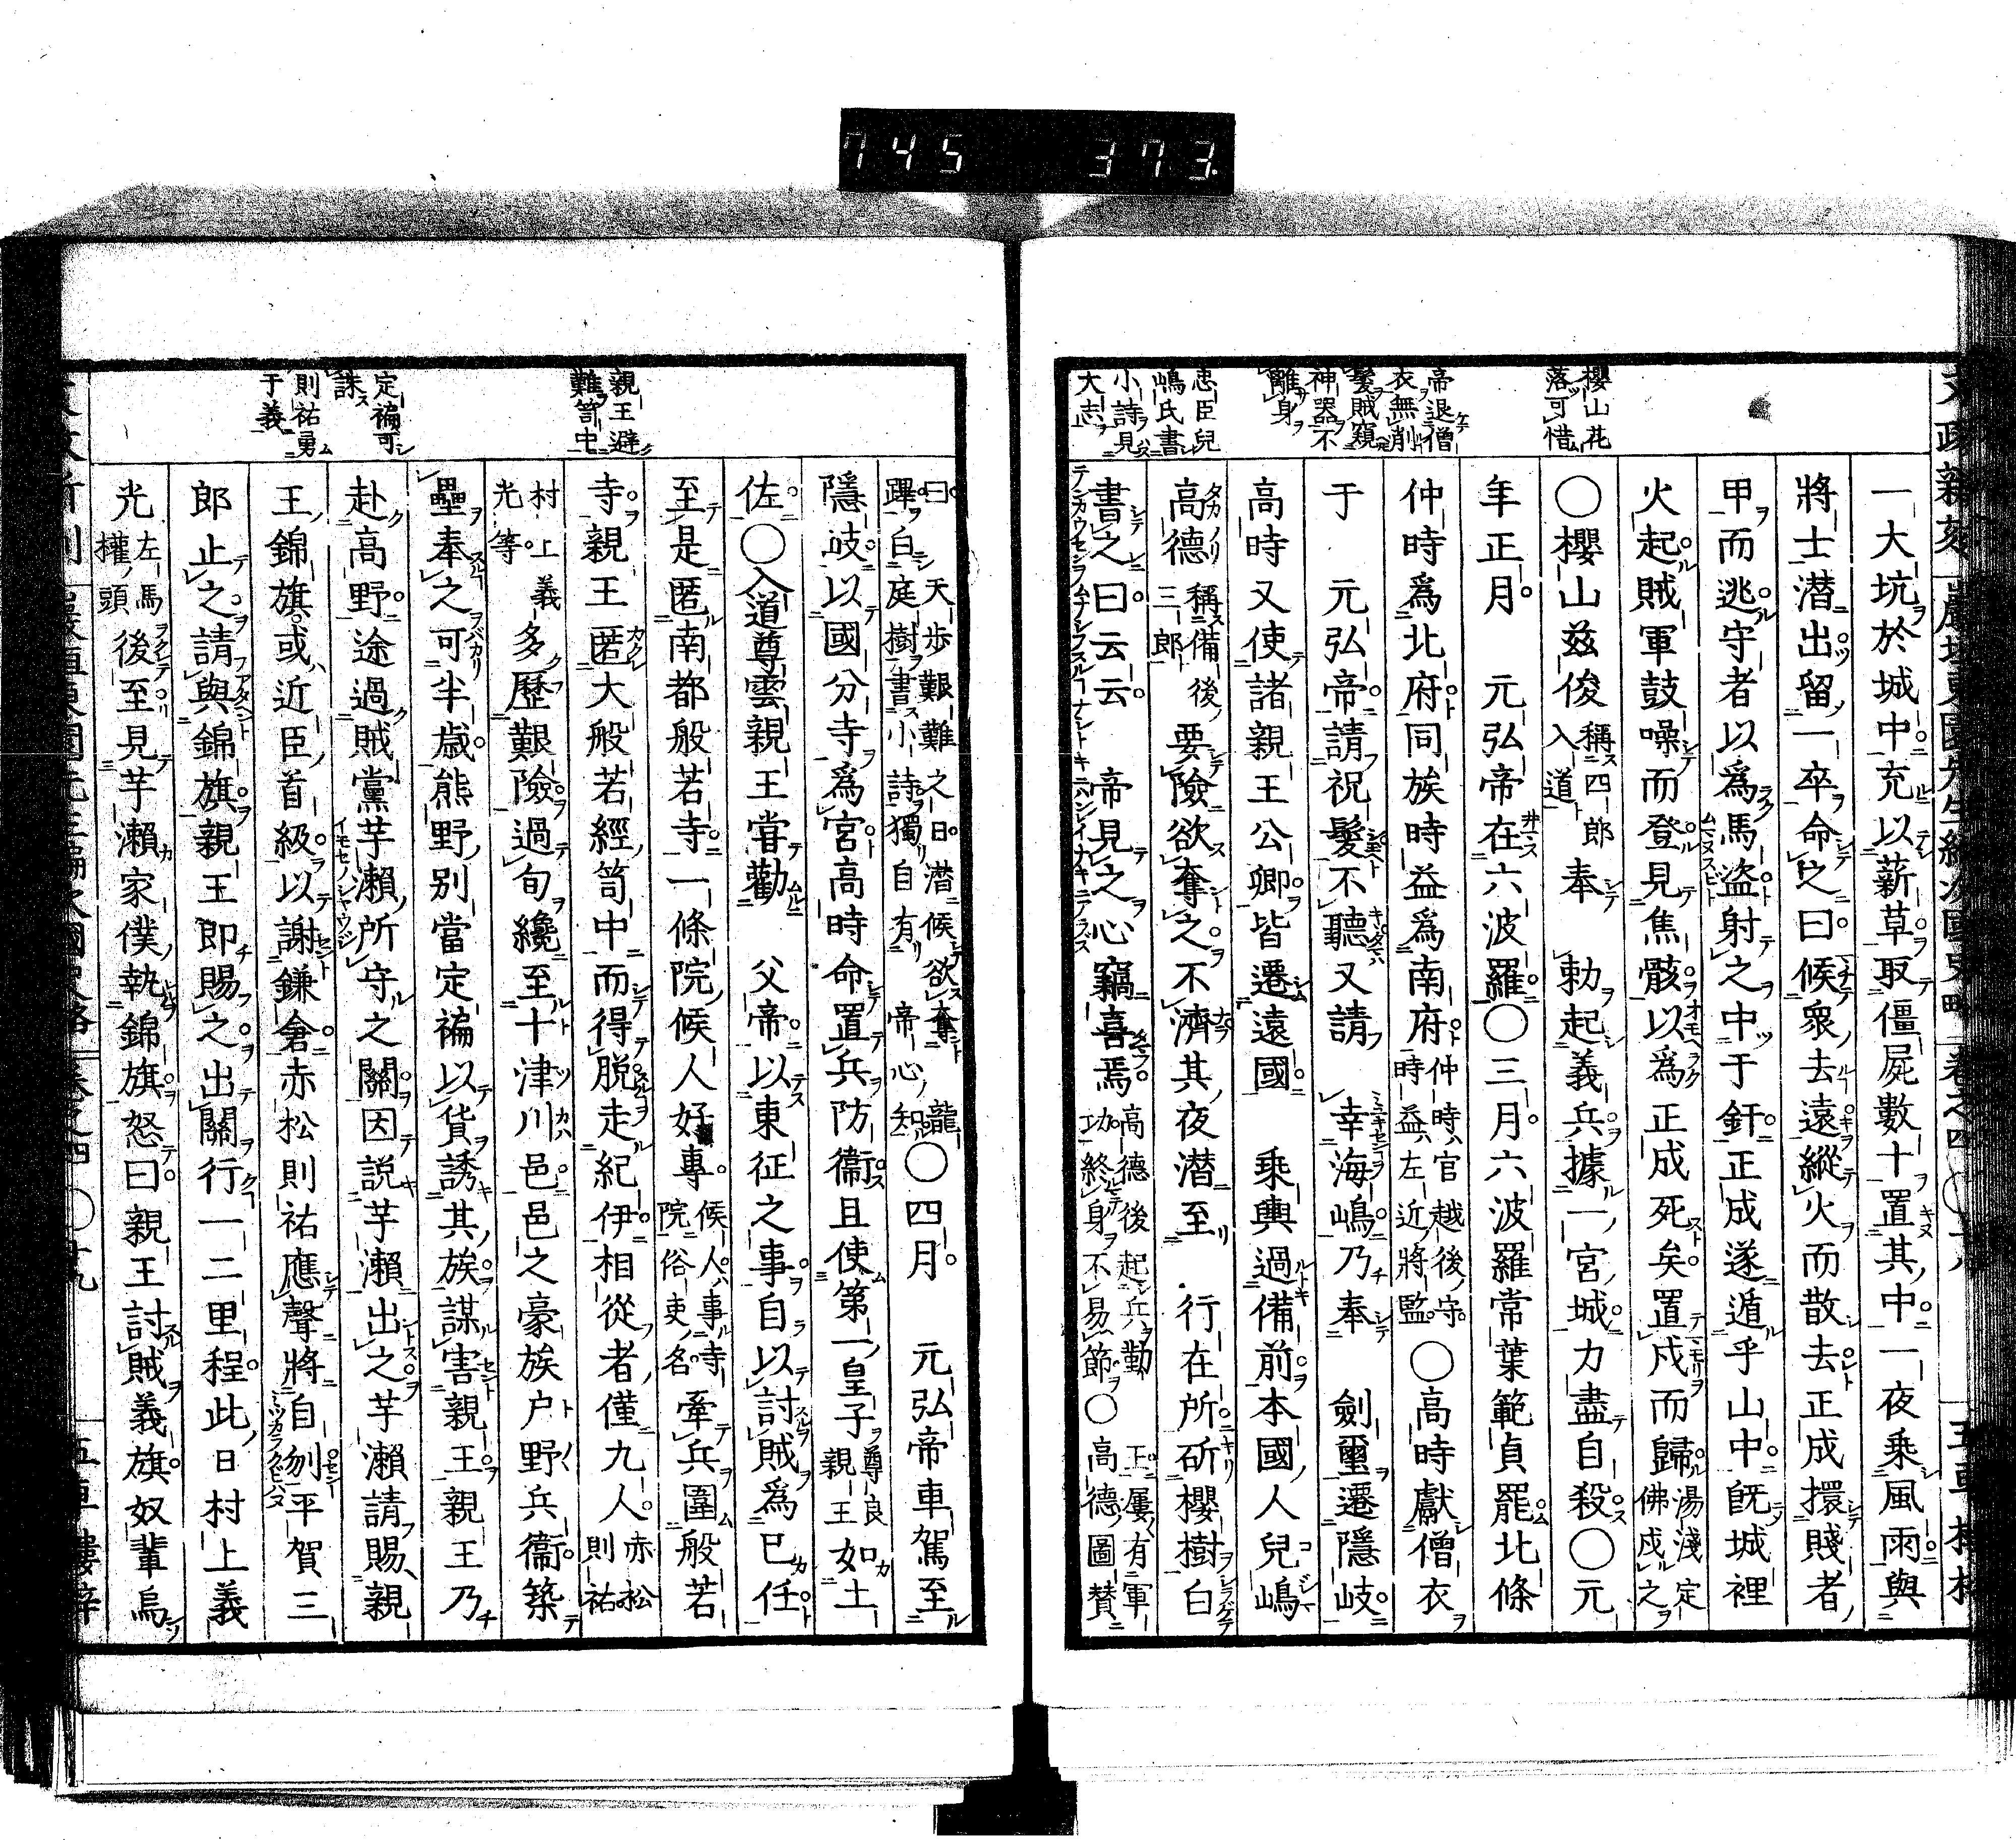 745 373
櫻山花
落可惜
帝退僧
衣無削
髮賊窺
神器不
離身
忠臣兒
嶋氏書
小詩見
大志
一大坑於城中充以薪草取僵屍數十置其中一夜乘風雨與
將士潜出留一卒命之曰候衆去遠縱火而散去正成擐賤者
甲而逃守者以爲馬盜射之中于釬正成遂遁乎山中旣城裡
火起賊軍鼓噪而登見焦骸以爲正成死矣置戍而歸湯淺定佛戍之
○櫻山茲俊稱四郎入道奉 勅起義兵據一宮城力盡自殺○元
年正月 元弘帝在六波羅○三月六波羅常葉範貞罷北條
仲時爲北府同族時益爲南府仲時官越後守時益左近將監○高時獻僧衣
于 元弘帝請祝髮不聽又請 幸海嶋乃奉 劍璽遷隱岐
高時又使諸親王公卿皆遷遠國 乘輿過備前本國人兒嶋
高德稱備後三郎要險欲奪之不濟其夜潜至 行在所斫櫻樹白
書之曰云云 帝見之心竊喜焉高德後起兵勤功終身不易節○正屢有軍高德圖賛
親王避
難笥中
定褊可
誅
則祐勇
于義
曰天步艱難之日潜候欲奪 龍蹕白庭樹書小詩獨自有 帝心知○四月 元弘帝車駕至
隱岐以國分寺爲宮高時命置兵防衞且使第一皇子尊良親王如土
佐○入道尊雲親王甞勸 父帝以東征之事自以討賊爲己任
至是匿南都般若寺一條院候人好專候人事寺院俗吏名牽兵圍般若
寺親王匿大般若經笥中而得脱走紀伊相從者僅九人赤松則祐
村上義光等多歷艱險過旬纔至十津川邑邑之豪族户野兵衞築
壘奉之可半歳熊野別當定褊以貨誘其族謀害親王親王乃
赴高野途過賊黨芋瀬所守之關因説芋瀬出之芋瀬請賜親
王錦旗或近臣首級以謝鎌倉赤松則祐應聲將自刎平賀三
郎止之請與錦旗親王即賜之出關行一二里程此日村上義
光左馬權頭後至見芋瀬家僕執錦旗怒曰親王討賊義旗奴輩烏